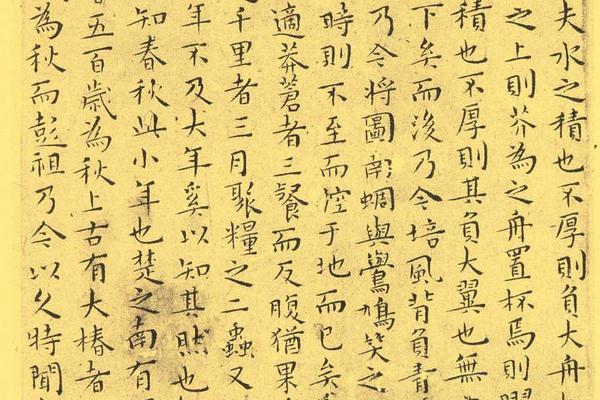 夫水之積也不厚則負大舟
之上則芥為之舟置杯焉則膠
積也不厚則其負大翼也無
下矣而後乃今培風背負青
乃今將圖南蜩與鷽鳩笑之
時則不至而控于地而已矣
適莽蒼者三餐而反腹猶果
千里者三月聚糧之二蟲又
年不及大年奚以知其然也
知春秋此小年也楚之南有
五百歲為秋上古有大椿者
為秋而彭祖乃今以久特聞